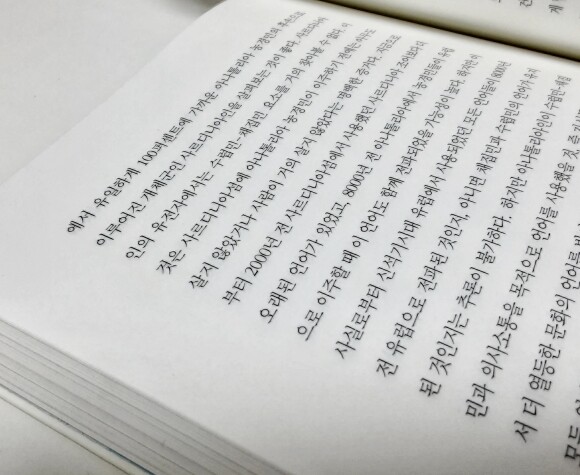 에서 유일하게 100퍼센트에 가까운 아나톨리아 농경민의 후손으로
이루어진 개체군인 사르디니아인을 살펴보는 것이 좋다. 사르디니아
인의 유전자에서는 수렵민-채집민 요소를 거의 찾아볼 수 없다. 이
것은 사르디니아섬에 아나톨리아 농경민이 이주하기 전에는 아무도
살지 않았거나 사람이 거의 살지 않았다는 명백한 증거다. 지금으로
부터 2000년 전 사르디니아섬에서 사용했던 사르디니아 조어보다 더
오래된 언어가 있었고, 8000년 전 아나톨리아에서 농경민들이 유럽
으로 이주할 때 이 언어도 함께 전파되었을 가능성이 높다. 하지만 이
사실로부터 신석기시대 유럽에서 사용되었던 모든 언어들이 8000년
전 유럽으로 전파된 것인지, 아니면 채집민과 수렵민의 언어가 유지
된 것인지는 추론이 불가하다. 하지만 아나톨리아인이 수렵민-채집
민과 의사소통을 목적으로 언어를 사용했을 것
서 더 열등한 문화의 언어를
모든